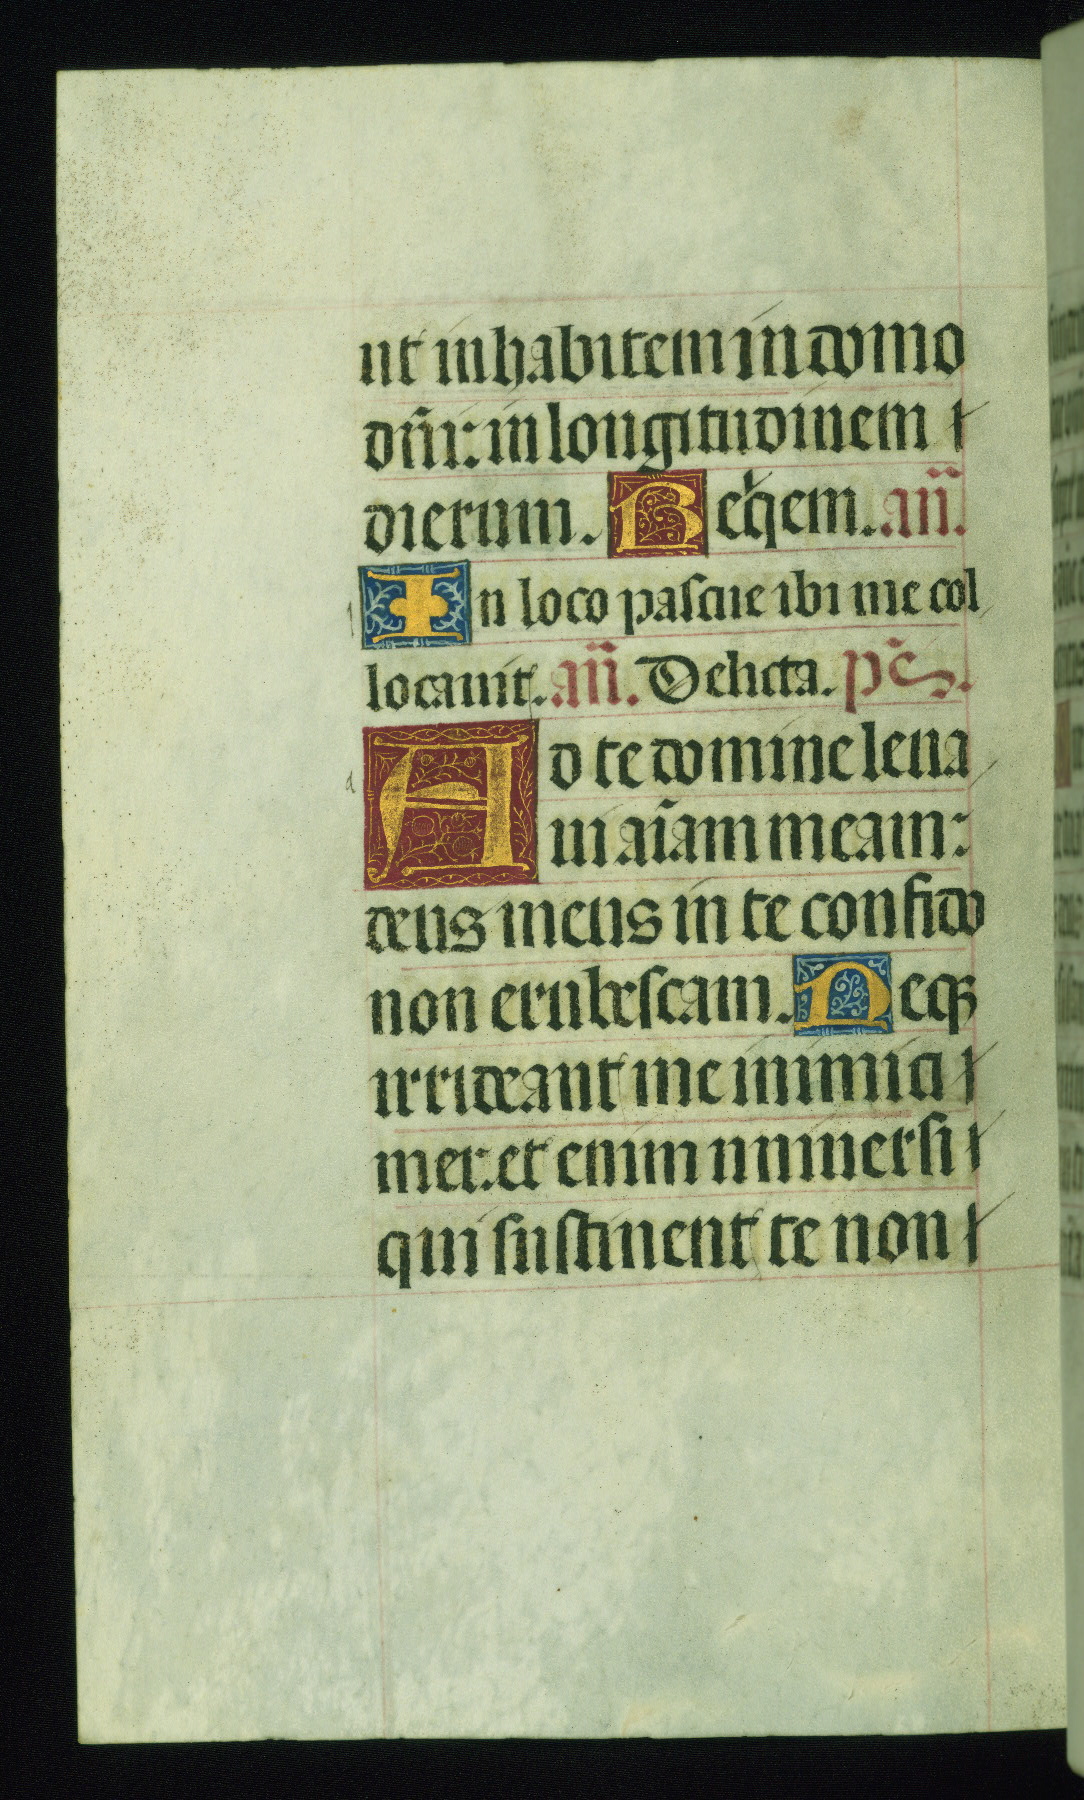 ut inhabitem in domo
dñi: in longitudinem
dierum. Requiem. añ.
In loco pascue ibi me col
locauit. añ. Delicta. ps.
Ad te domine leua
ui aĩam meam:
deus meus in te confido
non erubescam. Neqꝫ
irrideant me inimici
mei: et enim uniuersi
qui sustinent te non